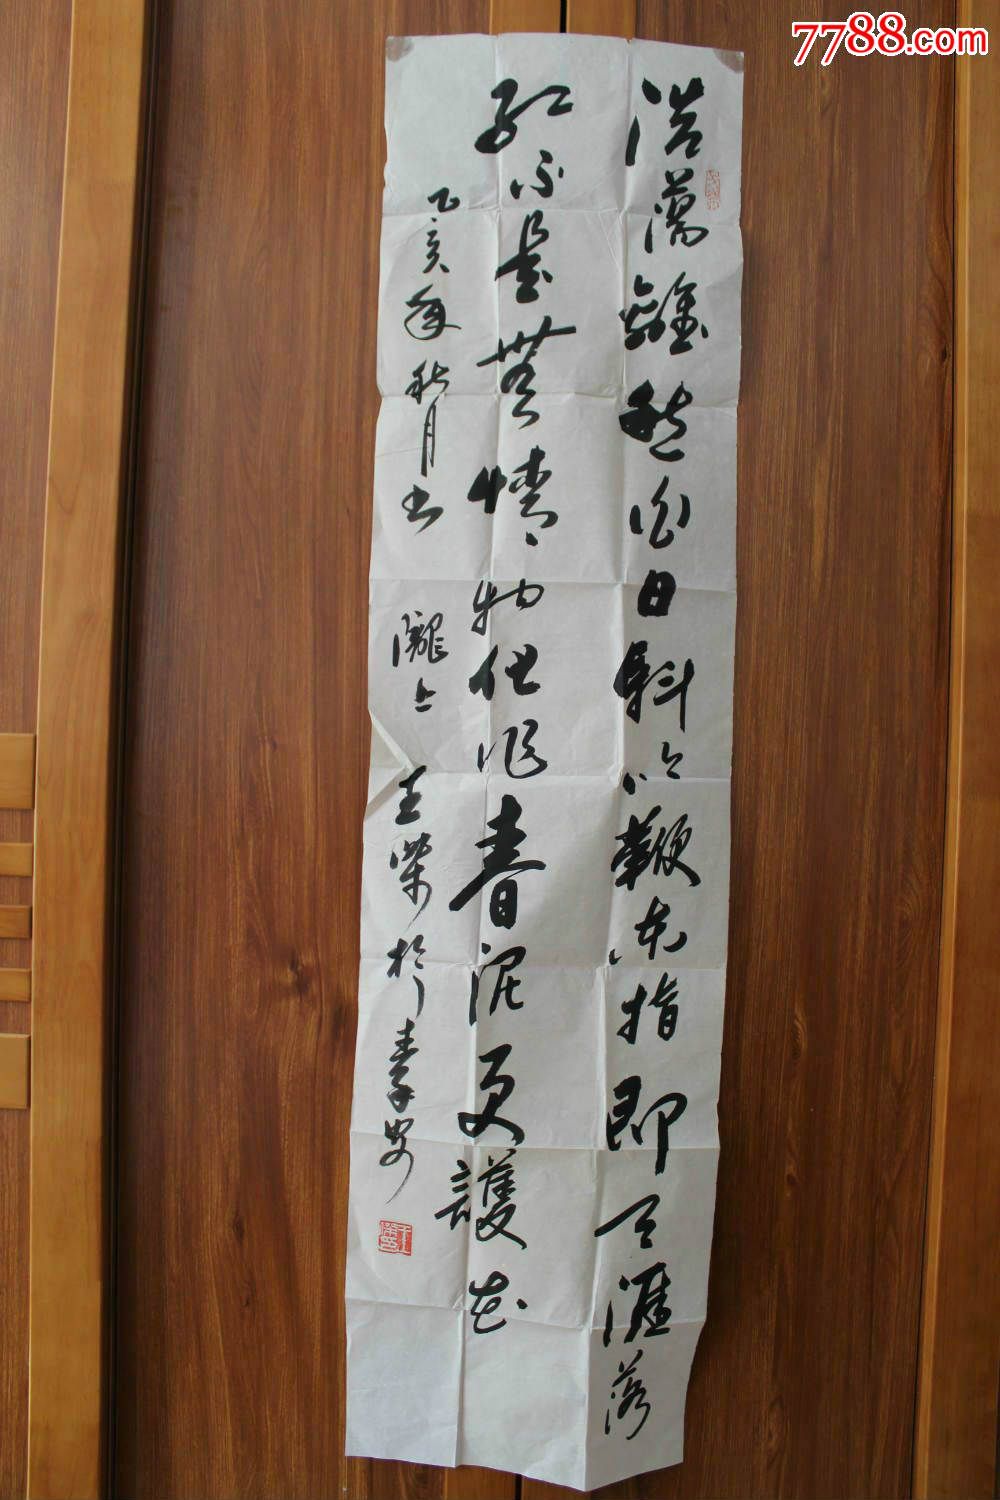 7788.com
浩蕩離愁白日斜吟鞭東指即天涯落
紅不是無情物化作春泥更護花
乙亥年秋月书 隴上 王榮於秦安